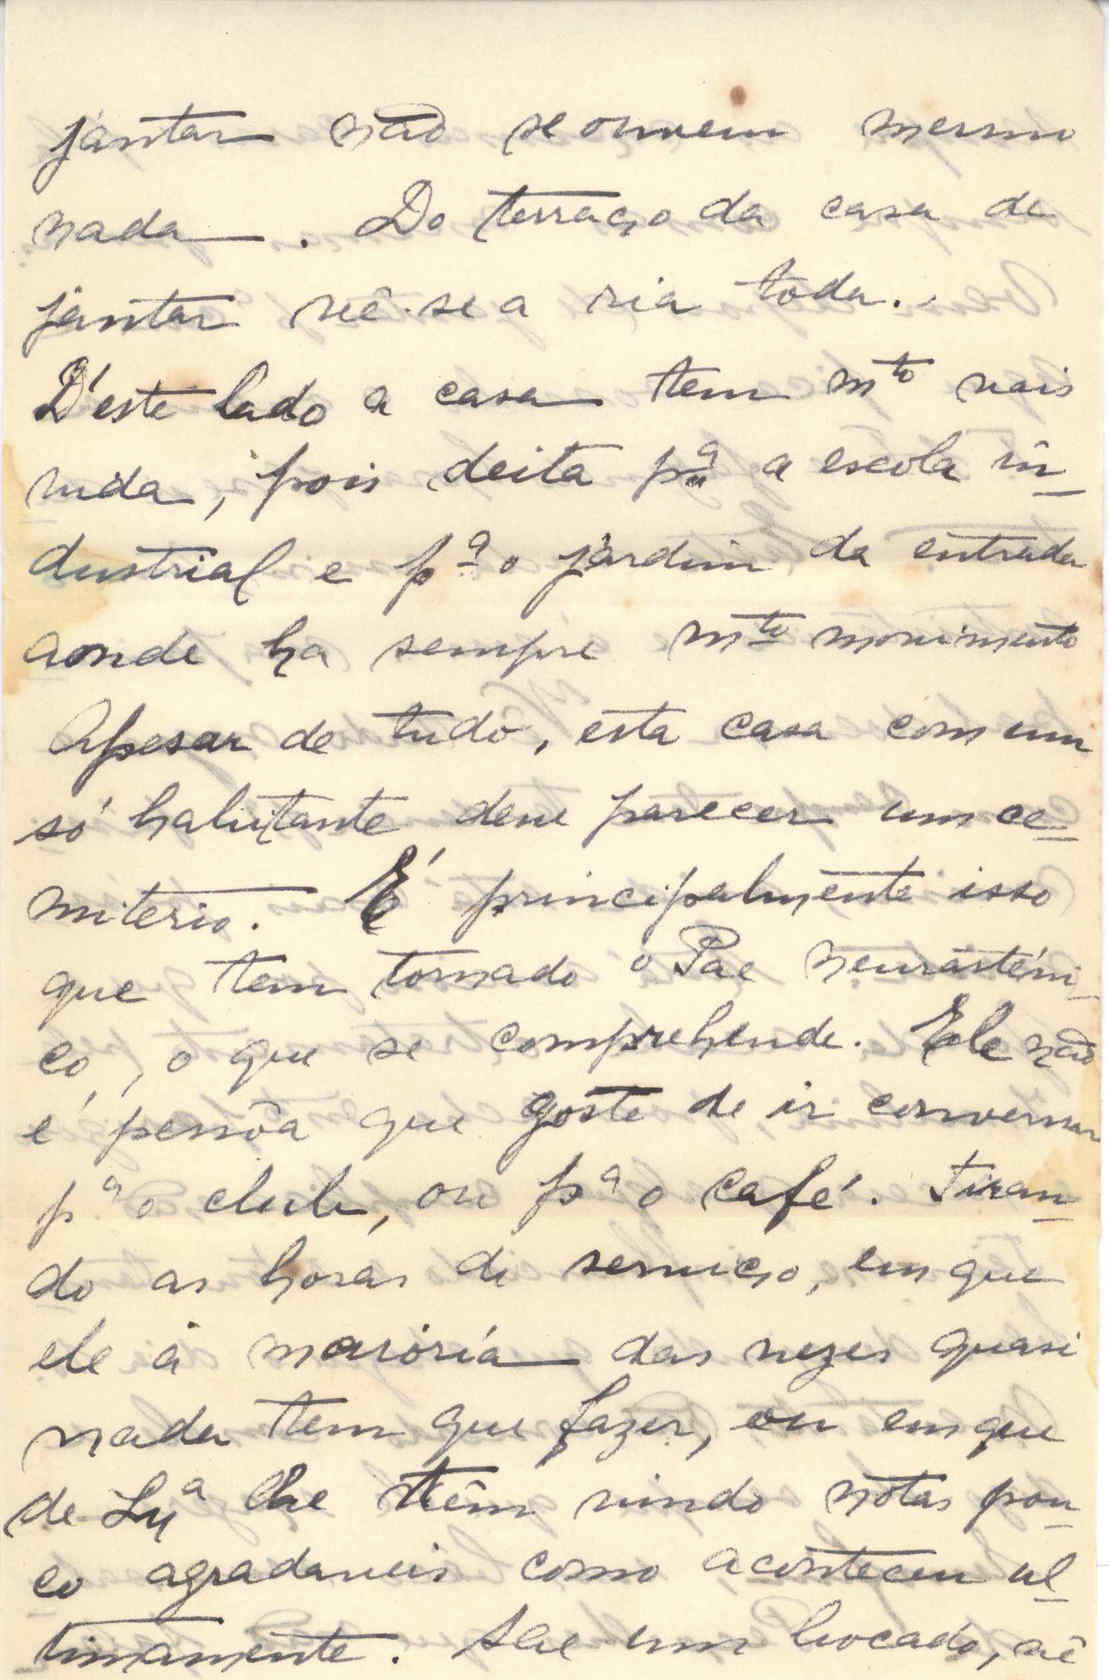 jantar não se ouvem mesmo
nada. Do terraço da casa de
jantar vê-se a ria toda.
D'éste lado a casa tem mto mais
vida, pois deita pa a escola in-
dustrial e pa o jardim da entrada
aonde ha sempre mto movimento
Apesar de tudo, esta casa com um
só habitante deve parecer um ce-
miterio. É principalmente isso
que tem tornado o Pae neurasténi-
co, o que se comprehende. Ele não
é pessôa que goste de ir conversar
pa o club, ou pa o café. Tiran-
do as horas de serviço, em que
ele á maioría das vezes quasi
nada tem que fazer, ou em que
de Lxa lhe têm vindo notas pou-
co agradaveis como aconteceu ul-
timamente. Sae um bocado, vê